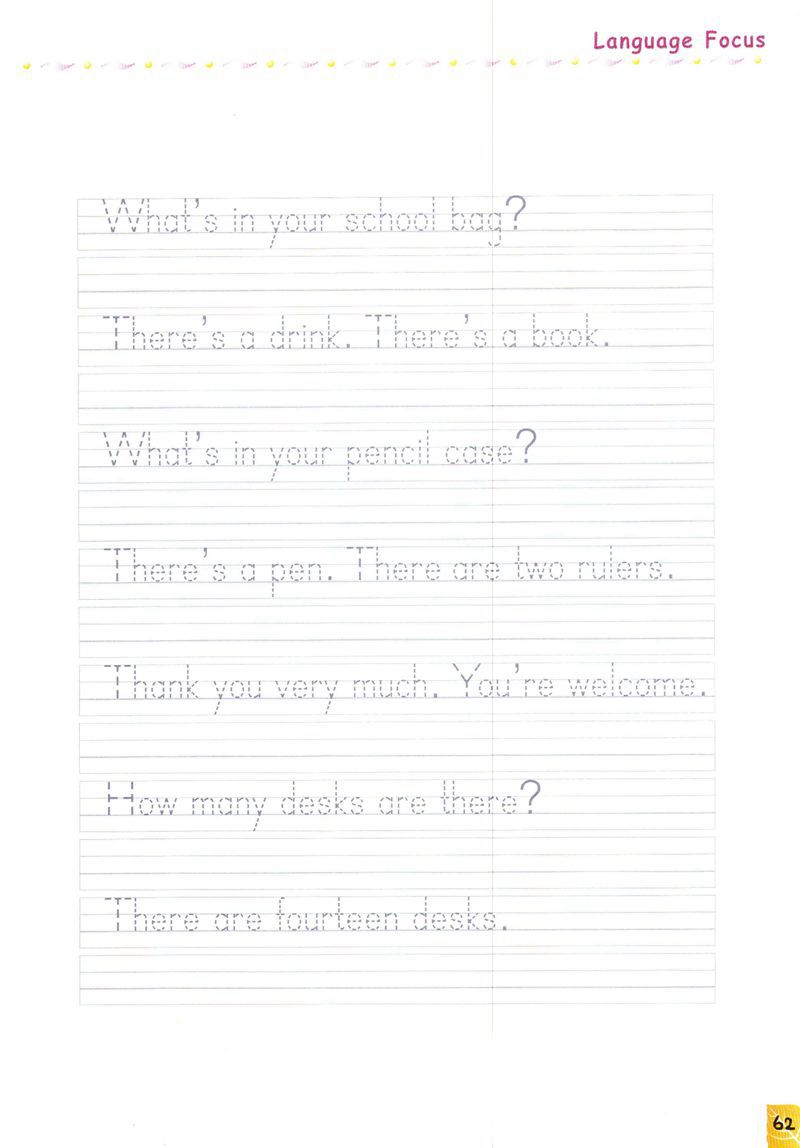 Language Focus
What's in your school bag?
There's a drink. There's a book.
What's in your pencil case?
There's a pen. There are two rulers.
Thank you very much. You're welcome.
How many desks are there?
There are fourteen desks.
62